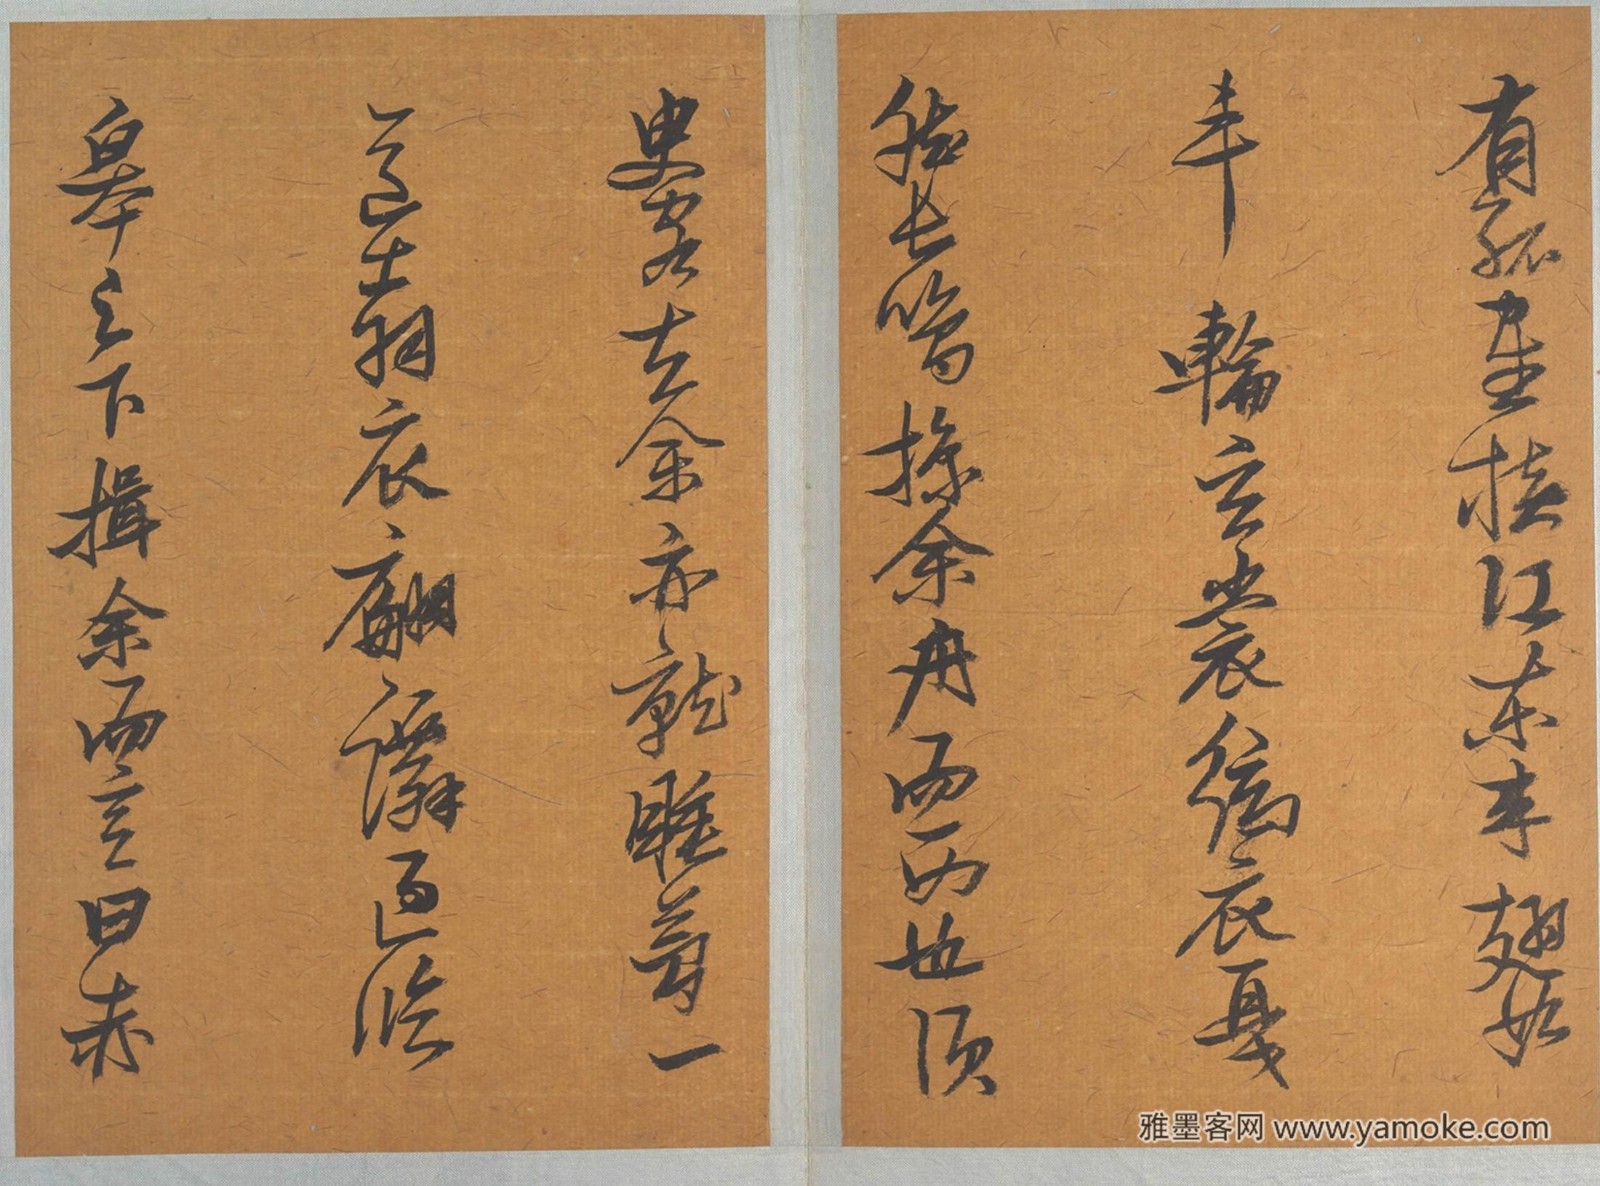 有孤鶴橫江東来翅如
車輪玄裳縞衣戛
然長鳴掠余舟而西也須
臾客去余亦就睡夢一
道士羽衣翩躚過臨
皋之下揖余而言曰赤
雅墨客网 www.yamoke.com